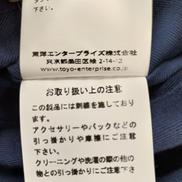 東洋エンタープライズ株式会社
東京都墨田区 2-14-12
www.toyo-enterprise.co.jp
お取り扱い上の注意
この製品には刺繍を施してあり
ます。
アクセサリーやバックなどの
引っ掛かりや摩擦にご注意
下さい。
クリーニングや洗濯の際の他の
物との引っ掛かりにご注意下さい